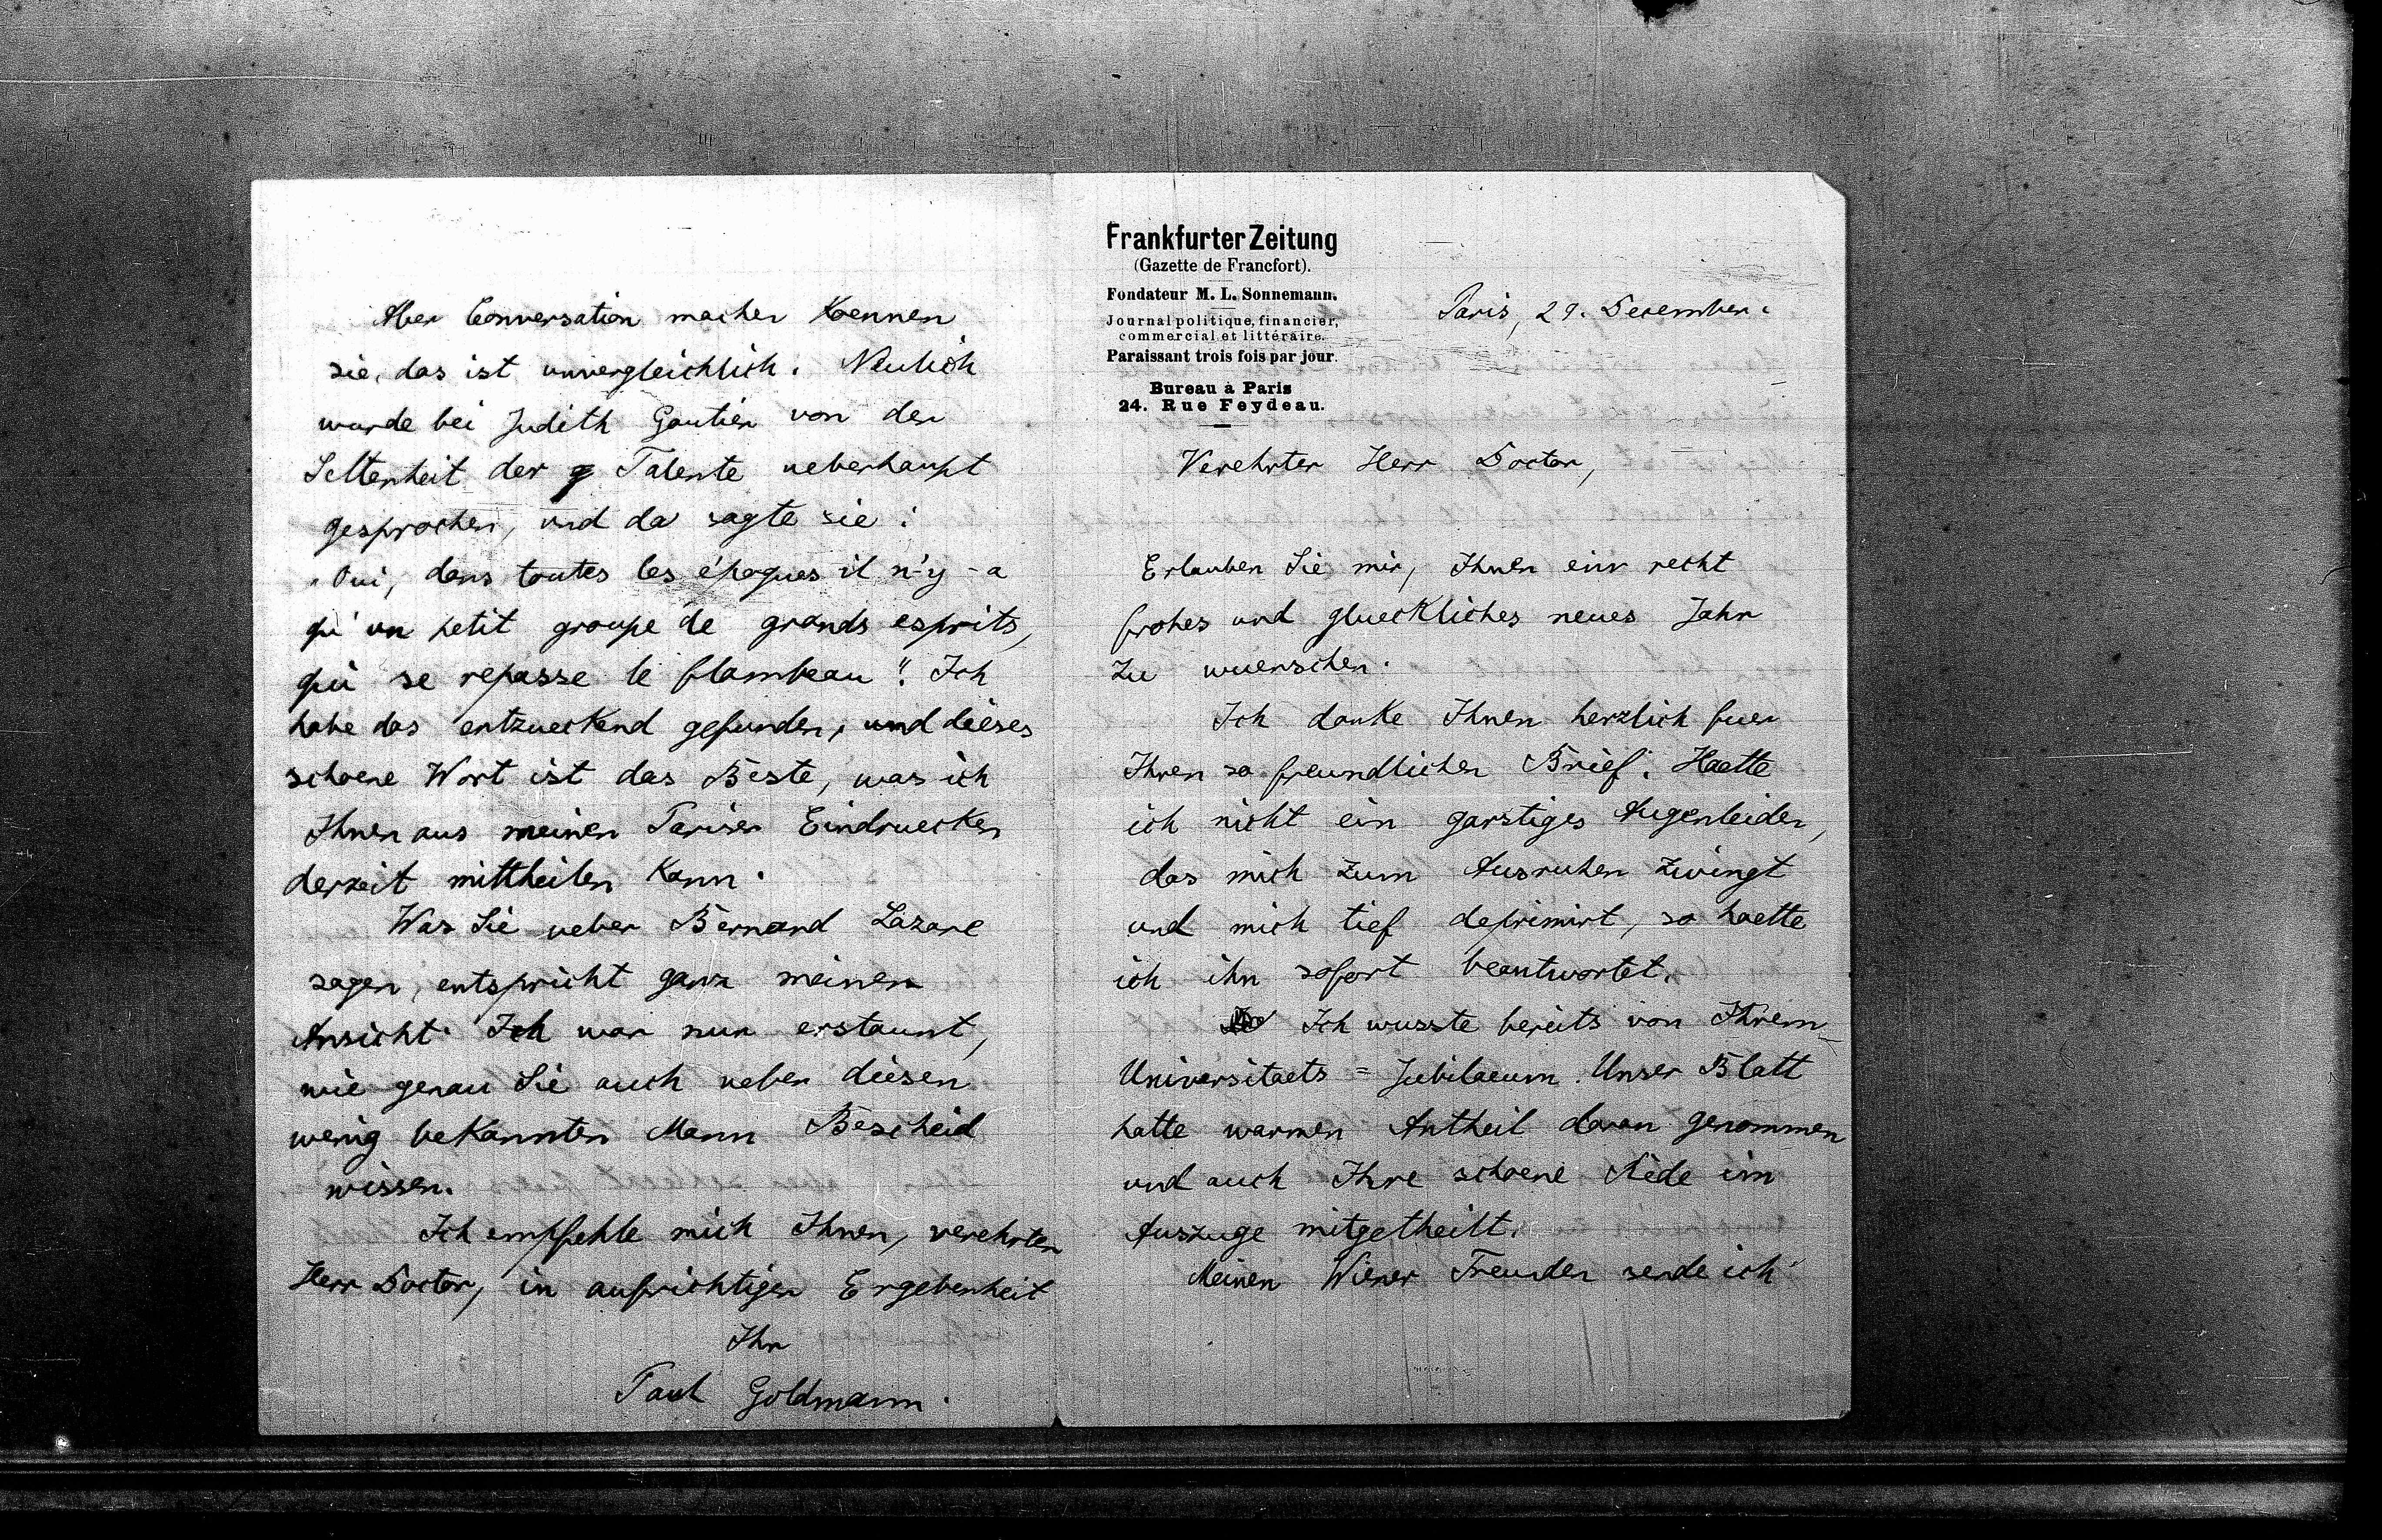 Frankfurter Zeitung
(Gazette de Francfort).
Fondateur M. L. Sonnemann.
Journal politique, financier,
commercial et littéraire.
Paraissant trois fois par jour.
Bureau à Paris
24. Rue Feydeau.
Paris, 29. December.
Verehrter Herr Doctor,
Erlauben Sie mir, Ihnen ein recht
frohes und glueckliches neues Jahr
zu wuenschen.
Ich danke Ihnen herzlich fuer
Ihren so freundlichen Brief. Haette
ich nicht ein garstiges Augenleiden,
das mich zum Ausruhen zwingt
und mich tief deprimirt, so haette
ich ihn sofort beantwortet.
Ich wusste bereits von Ihrem
Universitaets = Jubilaeum. Unser Blatt
hatte warmen Antheil daran genommen
und auch Ihre schoene Rede im
Auszuge mitgetheilt.
Meinen Wiener Freunden sende ich
Aber Conversation machen koennen
sie, das ist unvergleichlich. Neulich
wurde bei Judith Gautier von der
Seltenheit der Talente ueberhaupt
gesprochen, und da sagte sie:
„Oui, dans toutes les époques il n'y-a
qu'un petit groupe de grands esprits,
qui se repasse le flambeau". Ich
habe das entzueckend gefunden, und dieses
schoene Wort ist das Beste, was ich
Ihnen aus meinen Pariser Eindruecken
derzeit mittheilen kann.
Was Sie ueber Bernard Lazare
sagen, entspricht ganz meinen
Ansicht. Ich war nur erstaunt,
wie genau Sie auch ueber diesen
wenig bekannten Mann Bescheid
wissen.
Ich empfehle mich Ihnen, verehrter
Herr Doctor, in aufrichtiger Ergebenheit
Ihr
Paul Goldmann.